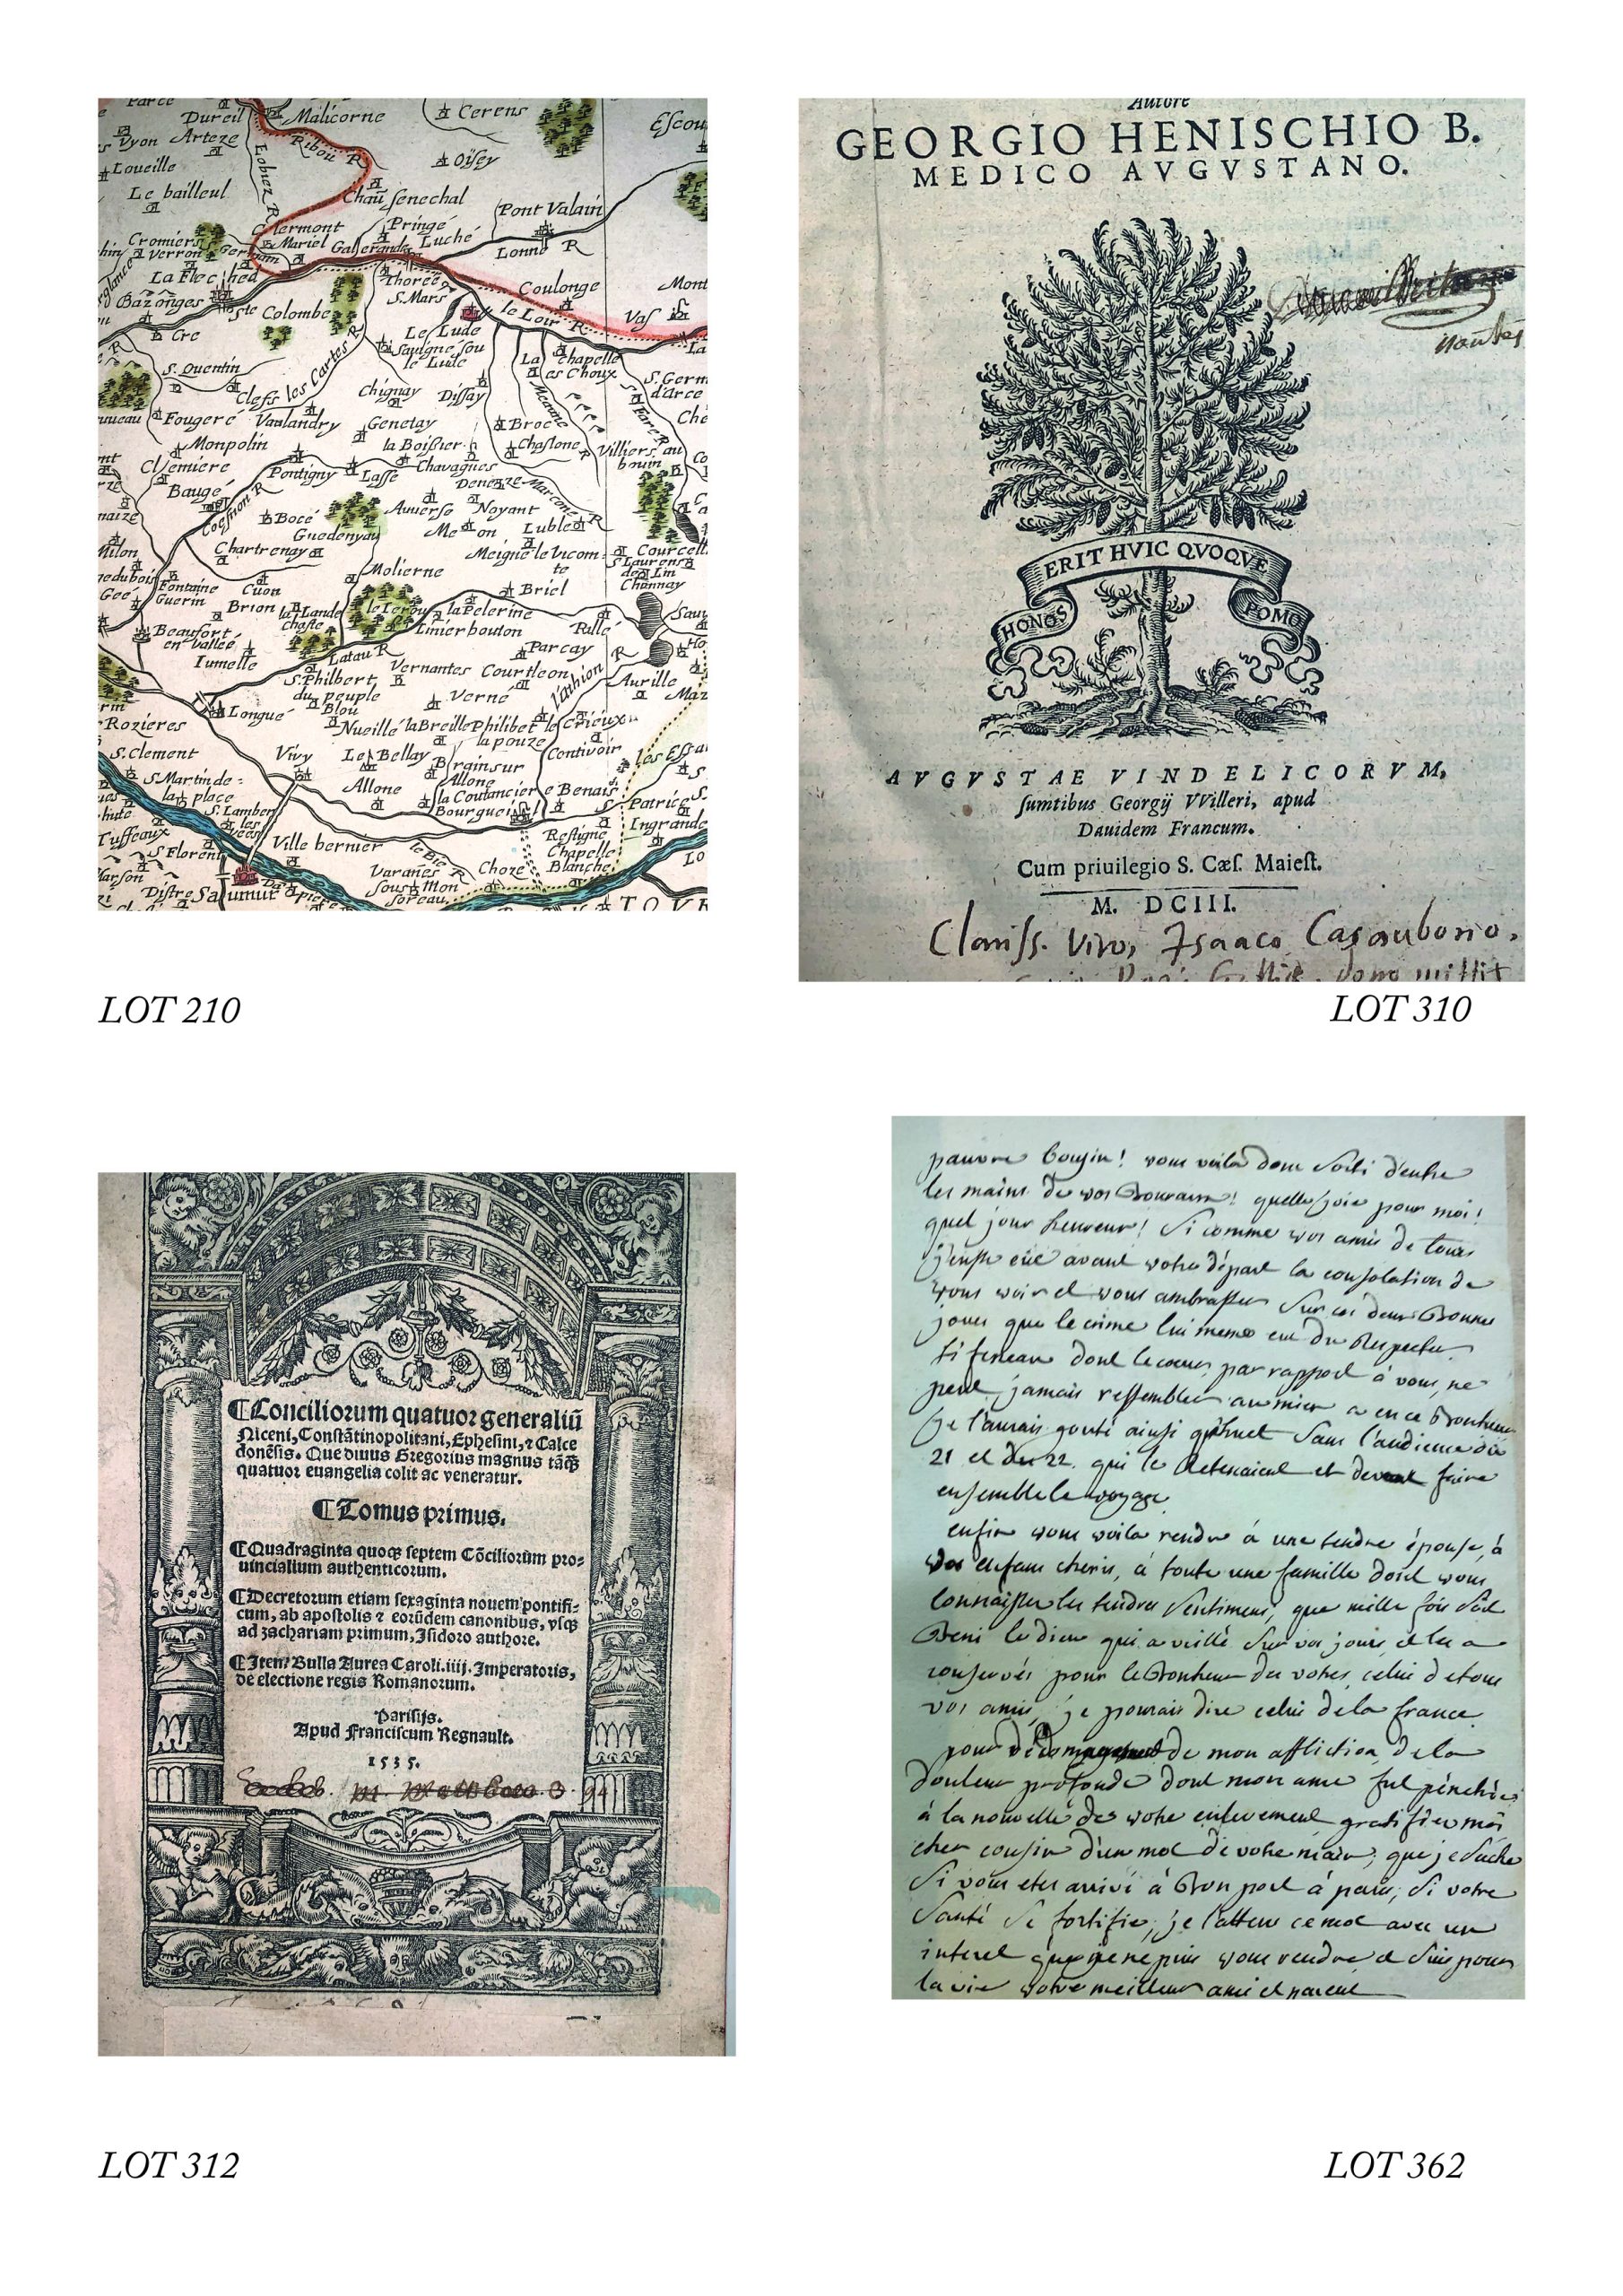 Parcé
Dureil
Malicorne
Cerens
Escou
Vyon
Arteze
Ribou R
Loueille
Oisey
Lobiez R
Le bailleul
Chau senechal
Pont Valain
Clermont
Pringé
Cromiers
Mariel
Galerande
Luché
Lonne R
Verron
La Fleche
Thorée
S. Mars
Coulonge
Mont
Bazonges
Ste Colombe
le Loir R.
Vas
Cre
Le Lude
Savigné sou
le Lude
La Chapelle
es Choux
La
S. Quentin
Clefs
les Cartes R
Chignay
Dissay
S. Germ
d'arce
Fougeré
Vaulandry
Genetay
Broc
Ché
Monpolin
la Boissier
Chastone
Villiers au
bouin
Clemiere
Pontigny
Lasse
Chavagnes
Baugé
Denezé
Marconé R
Coesnon R
Bocé
Auverse
Noyant
Guedenyau
Meon
Lublé
Chartrenay
Meigné le Vicom
te
Courcell
S Laurens
de Lin
Channay
Milon
Molierne
Fontaine
Guerin
Cuon
Briel
Gée
Brion
la Lande
chasle
la Pelerine
Linierbouton
Rillé
Beaufort
en vallée
Parcay
R
Iumelle
Latau R
Vernantes
Courtleon
l'athion
Aurille
S. Philbert
du peuple
Verné
Maz
Longué
Blou
Rozieres
Nueillé
la Breille
Philibet
la pouze
S. Clement
Vivy
Le Bellay
Brain sur
Allone
Contivoir
les Essa
S. Martin de
la place
Allone
la Coutanciere
Benais
S. Lamber
Bourgueil
Patrice
Tuffeaux
Ingrande
S Florent
Ville bernier
Restigné
Chapelle
Blanche
Varanes
sous Mon
soreau
Choze
Distre
Saumur
TOVR
LOT 210
Autore
GEORGIO HENISCHIO B.
MEDICO AVGVSTANO.
nantes
ERIT HVIC QVOQVE
HONOS
POMO
AVGVSTAE VINDELICORVM,
sumtibus Georgij VVilleri, apud
Dauidem Francum.
Cum priuilegio S. Cæs. Maiest.
M. DCIII.
Clariss. Viro, Isaaco Casaubono,
dono mittit
LOT 310
¶Conciliorum quatuor generaliũ
Niceni, Constãtinopolitani, Ephesini, ⁊ Calce
donẽsis. Que diuus Gregorius magnus tãqꝫ
quatuor euangelia colit ac veneratur.
¶Tomus primus.
¶Quadraginta quoqꝫ septem Cõciliorum pro-
uincialium authenticorum.
¶Decretorum etiam sexaginta nouem pontifi-
cum, ab apostolis ⁊ eorũdem canonibus, vsqꝫ
ad zachariam primum, Isidoro authore.
¶Item Bulla Aurea Caroli.iiij. Imperatoris,
de electione regis Romanorum.
Parisijs.
Apud Franciscum Regnault.
1535.
LOT 312
pauvre Cousin! vous voila donc sorti d'entre
les mains de vos Bourreaux! quelle joie pour moi!
quel jour heureux! Si comme vos amis de tours
j'eusse eué avant votre départ la consolation de
vous voir et vous ambrasser sur ces deux Bonnes
joues que le crime lui meme eut du Respecter
fifeneau dont le coeur par rapport à vous, ne
peut jamais ressembler au mien a eu ce Bonheur
je l'aurais gouté ainsi sans l'audience du
21 et du 22. qui le Retenaient et devoit faire
ensemble le voyage
enfin vous voila rendu à une tendre épouse, à
vos enfans cheris, à toute une famille dont vous
connaissez les tendres sentimens, que mille fois soit
Beni le dieu qui a veillé sur vos jours et les a
conservés pour le Bonheur des votres, celui de tous
vos amis, je pourais dire celui de la france
pour de mon affliction de la
douleur profonde dont mon ame fut pénétrée
à la nouvelle de votre enlevement gratifiez moi
cher cousin d'un mot de votre main; que je sache
si vous etes arrivé à Bon port à paris, si votre
Santé se fortifie, j'e l'attens ce mot avec un
interet que je ne puis vous rendre et suis pour
la vie votre meilleur ami et parent
LOT 362